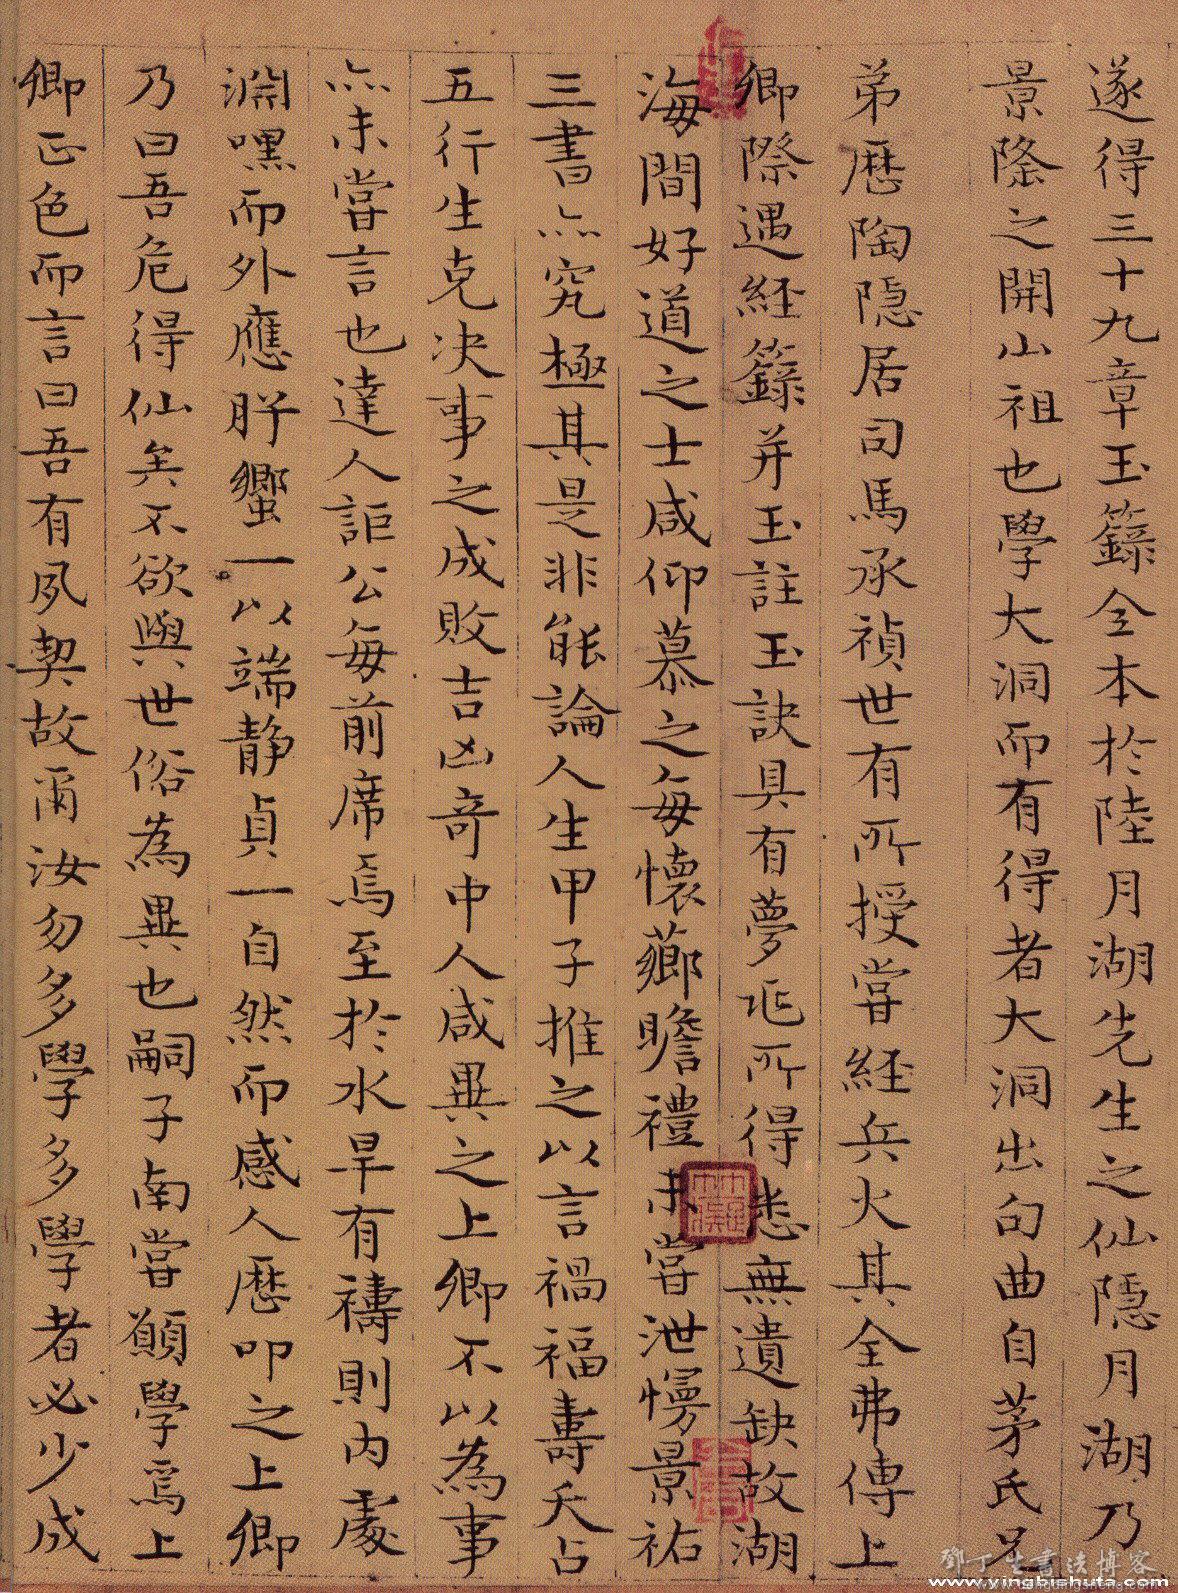 遂得三十九章玉籙全本於陸月湖先生之仙隱月湖乃
景隆之開山祖也學大洞而有得者大洞出句曲自茅氏兄
弟歷陶隱居司馬承禎世有所授嘗經兵火其全弗傳上
卿際遇經籙并玉註玉訣具有夢所得悉無遺缺故湖
海間好道之士咸仰慕之每懷薌瞻禮未嘗泄慢景祐
三書亦究極其是非能論人生甲子推之以言禍福壽夭占
五行生克决事之成敗吉凶竒中人咸異之上卿不以為事
亦未嘗言也達人詎公每前席焉至於水旱有禱則內處
淵嘿而外應肸蠁一以端静貞一自然而感人歷叩之上卿
乃曰吾危得仙矣不欲與世俗為異也嗣子南嘗願學焉上
卿正色而言曰吾有夙契故爾汝勿多學多學者必少成
鄧丁生書法博客
www.yingbishuta.com